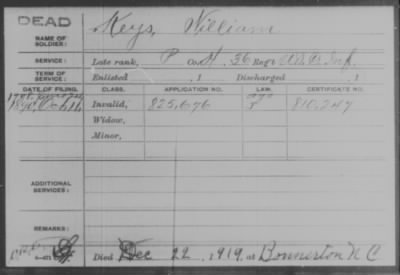 DEAD
Keys, William
NAME OF SOLDIER:
SERVICE: Late rank, P Co. H, 36 Reg't U.S.C. Inf.
TERM OF SERVICE: Enlisted , 1 Discharged , 1
DATE OF FILING. CLASS. APPLICATION NO. LAW. CERTIFICATE NO.
1890, Oct. 11 Invalid, 825,676 810,247
Widow,
Minor,
ADDITIONAL SERVICES:
REMARKS:
Died Dec 22, 1919, at Bonnerton N C